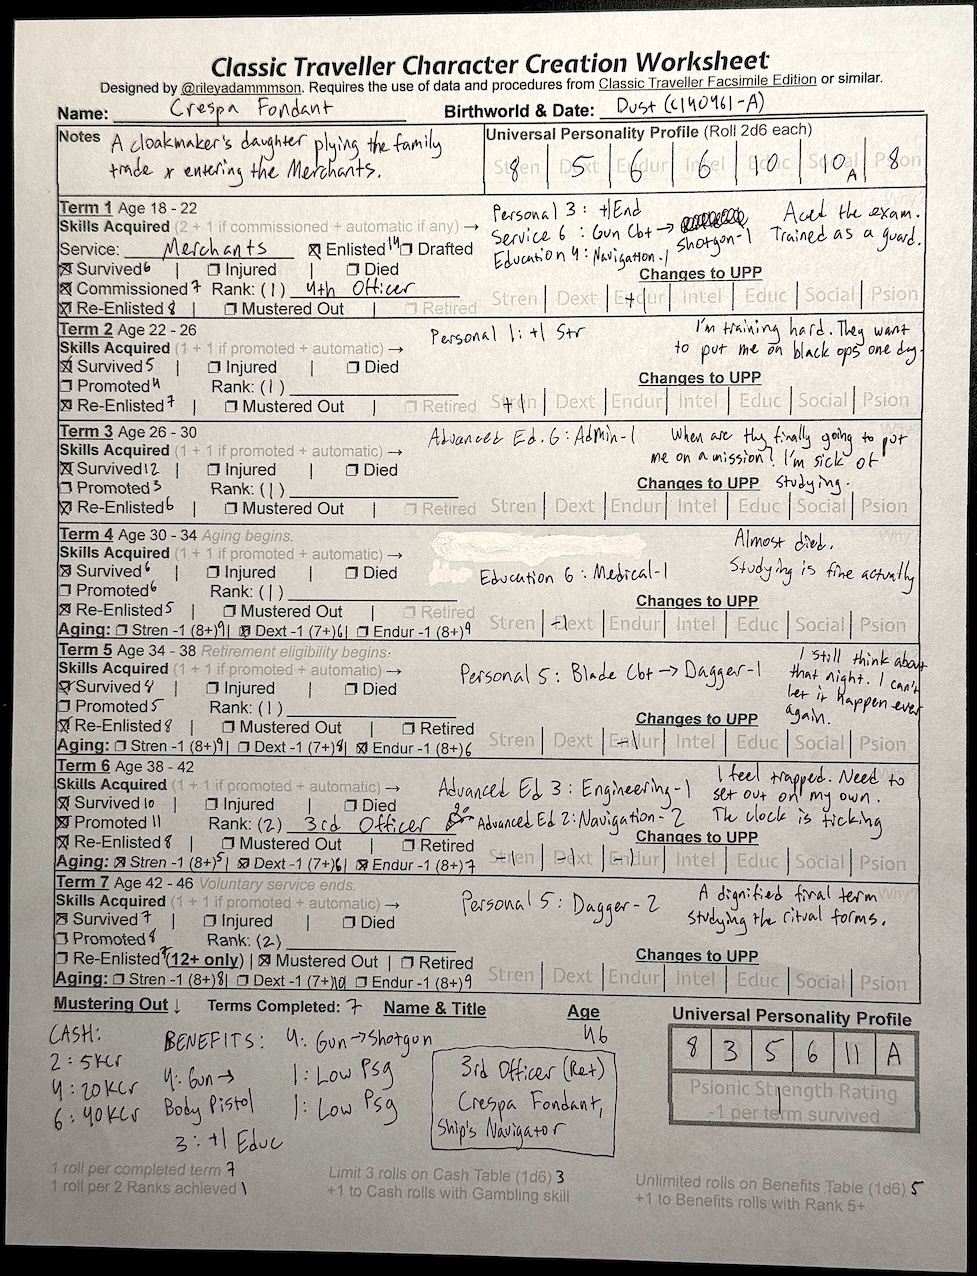 Classic Traveller Character Creation Worksheet
Designed by @rileyadammmson. Requires the use of data and procedures from Classic Traveller Facsimile Edition or similar.
Name: Crespa Fondant Birthworld & Date: Dust (C140461-A)
Notes A cloakmaker's daughter plying the family
trade & entering the Merchants.
Universal Personality Profile (Roll 2d6 each)
Stren Dext Endur Intel Educ Social Psion
8 5 6 6 10 10 A 8
Term 1 Age 18 - 22
Skills Acquired (2 + 1 if commissioned + automatic if any) →
Personal 3: +1 End
Service 6: Gun Cbt → Shotgun-1
Education 4: Navigation-1
Aced the exam.
Trained as a guard.
Service: Merchants ☒ Enlisted 14 ☐ Drafted
☒ Survived 6 | ☐ Injured | ☐ Died
☒ Commissioned 7 Rank: (1) 4th Officer
☒ Re-Enlisted 8 | ☐ Mustered Out | ☐ Retired
Changes to UPP
Stren Dext Endur Intel Educ Social Psion
+1
Term 2 Age 22 - 26
Skills Acquired (1 + 1 if promoted + automatic) →
Personal 1: +1 Str
I'm training hard. They want
to put me on black ops one day.
☒ Survived 5 | ☐ Injured | ☐ Died
☐ Promoted 4 Rank: (1)
☒ Re-Enlisted 7 | ☐ Mustered Out | ☐ Retired
Changes to UPP
Stren Dext Endur Intel Educ Social Psion
+1
Term 3 Age 26 - 30
Skills Acquired (1 + 1 if promoted + automatic) →
Advanced Ed. 6: Admin-1
When are they finally going to put
me on a mission? I'm sick of
studying.
☒ Survived 12 | ☐ Injured | ☐ Died
☐ Promoted 3 Rank: (1)
☒ Re-Enlisted 6 | ☐ Mustered Out | ☐ Retired
Changes to UPP
Stren Dext Endur Intel Educ Social Psion
Term 4 Age 30 - 34 Aging begins.
Skills Acquired (1 + 1 if promoted + automatic) →
Education 6: Medical-1
Almost died.
Studying is fine actually
☒ Survived 6 | ☐ Injured | ☐ Died
☐ Promoted 6 Rank: (1)
☒ Re-Enlisted 5 | ☐ Mustered Out | ☐ Retired
Aging: ☐ Stren -1 (8+) 9 | ☒ Dext -1 (7+) 6 | ☐ Endur -1 (8+) 9
Changes to UPP
Stren Dext Endur Intel Educ Social Psion
-1
Term 5 Age 34 - 38 Retirement eligibility begins.
Skills Acquired (1 + 1 if promoted + automatic) →
Personal 5: Blade Cbt → Dagger-1
I still think about
that night. I can't
let it happen ever
again.
☒ Survived 8 | ☐ Injured | ☐ Died
☐ Promoted 5 Rank: (1)
☒ Re-Enlisted 8 | ☐ Mustered Out | ☐ Retired
Aging: ☐ Stren -1 (8+) 9 | ☐ Dext -1 (7+) 8 | ☒ Endur -1 (8+) 6
Changes to UPP
Stren Dext Endur Intel Educ Social Psion
-1
Term 6 Age 38 - 42
Skills Acquired (1 + 1 if promoted + automatic) →
Advanced Ed 3: Engineering-1
Advanced Ed 2: Navigation-2
I feel trapped. Need to
set out on my own.
The clock is ticking
☒ Survived 10 | ☐ Injured | ☐ Died
☒ Promoted 11 Rank: (2) 3rd Officer
☒ Re-Enlisted 8 | ☐ Mustered Out | ☐ Retired
Aging: ☒ Stren -1 (8+) 5 | ☒ Dext -1 (7+) 6 | ☒ Endur -1 (8+) 7
Changes to UPP
Stren Dext Endur Intel Educ Social Psion
-1 -1 -1
Term 7 Age 42 - 46 Voluntary service ends.
Skills Acquired (1 + 1 if promoted + automatic) →
Personal 5: Dagger-2
A dignified final term
studying the ritual forms.
☒ Survived 7 | ☐ Injured | ☐ Died
☐ Promoted 8 Rank: (2)
☐ Re-Enlisted 7 (12+ only) | ☒ Mustered Out | ☐ Retired
Aging: ☐ Stren -1 (8+) 8 | ☐ Dext -1 (7+) 10 ☐ Endur -1 (8+) 9
Changes to UPP
Stren Dext Endur Intel Educ Social Psion
Mustering Out ↓ Terms Completed: 7 Name & Title Age
46
CASH:
2: 5KCr
4: 20KCr
6: 40KCr
BENEFITS: 4: Gun → Shotgun
4: Gun →
Body Pistol
3: +1 Educ
1: Low Psg
1: Low Psg
3rd Officer (Ret)
Crespa Fondant,
Ship's Navigator
Universal Personality Profile
8 3 5 6 11 A
Psionic Strength Rating
-1 per term survived
1
1 roll per completed term 7
1 roll per 2 Ranks achieved 1
Limit 3 rolls on Cash Table (1d6) 3
+1 to Cash rolls with Gambling skill
Unlimited rolls on Benefits Table (1d6) 5
+1 to Benefits rolls with Rank 5+